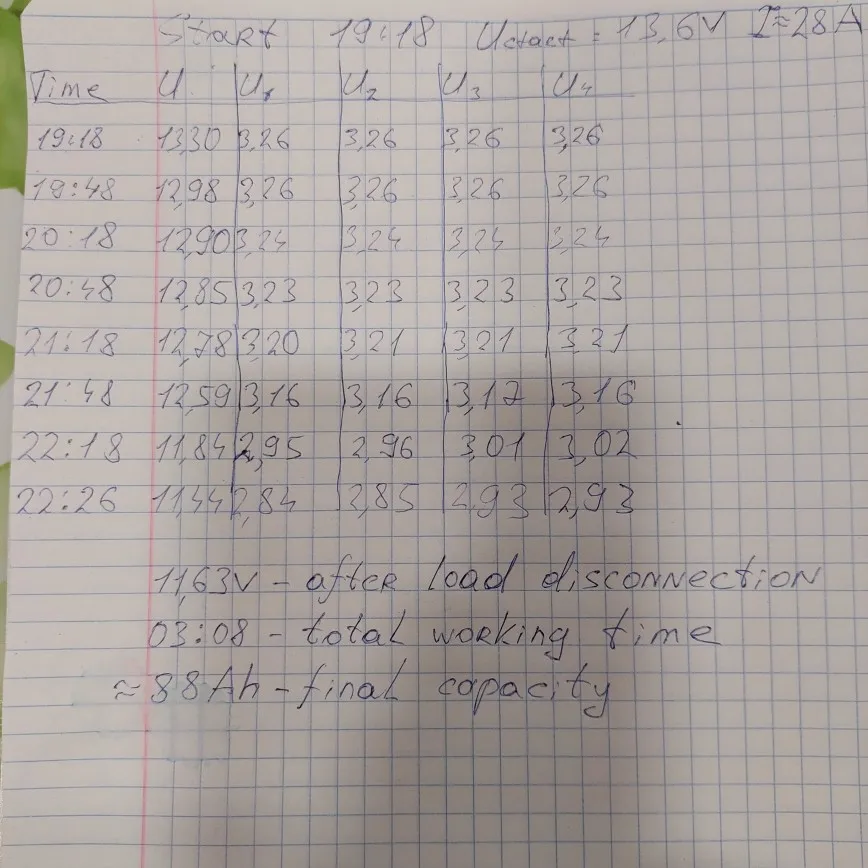 Start 19:18 Uстаст = 13,6V I≈28A
Time U U₁ U₂ U₃ U₄
19:18 13,30 3,26 3,26 3,26 3,26
19:48 12,98 3,26 3,26 3,26 3,26
20:18 12,90 3,24 3,24 3,24 3,24
20:48 12,85 3,23 3,23 3,23 3,23
21:18 12,78 3,20 3,21 3,21 3,21
21:48 12,59 3,16 3,16 3,17 3,16
22:18 11,84 2,95 2,96 3,01 3,02
22:26 11,44 2,84 2,85 2,93 2,93
11,63V - after load disconnection
03:08 - total working time
≈ 88Ah - final capacity